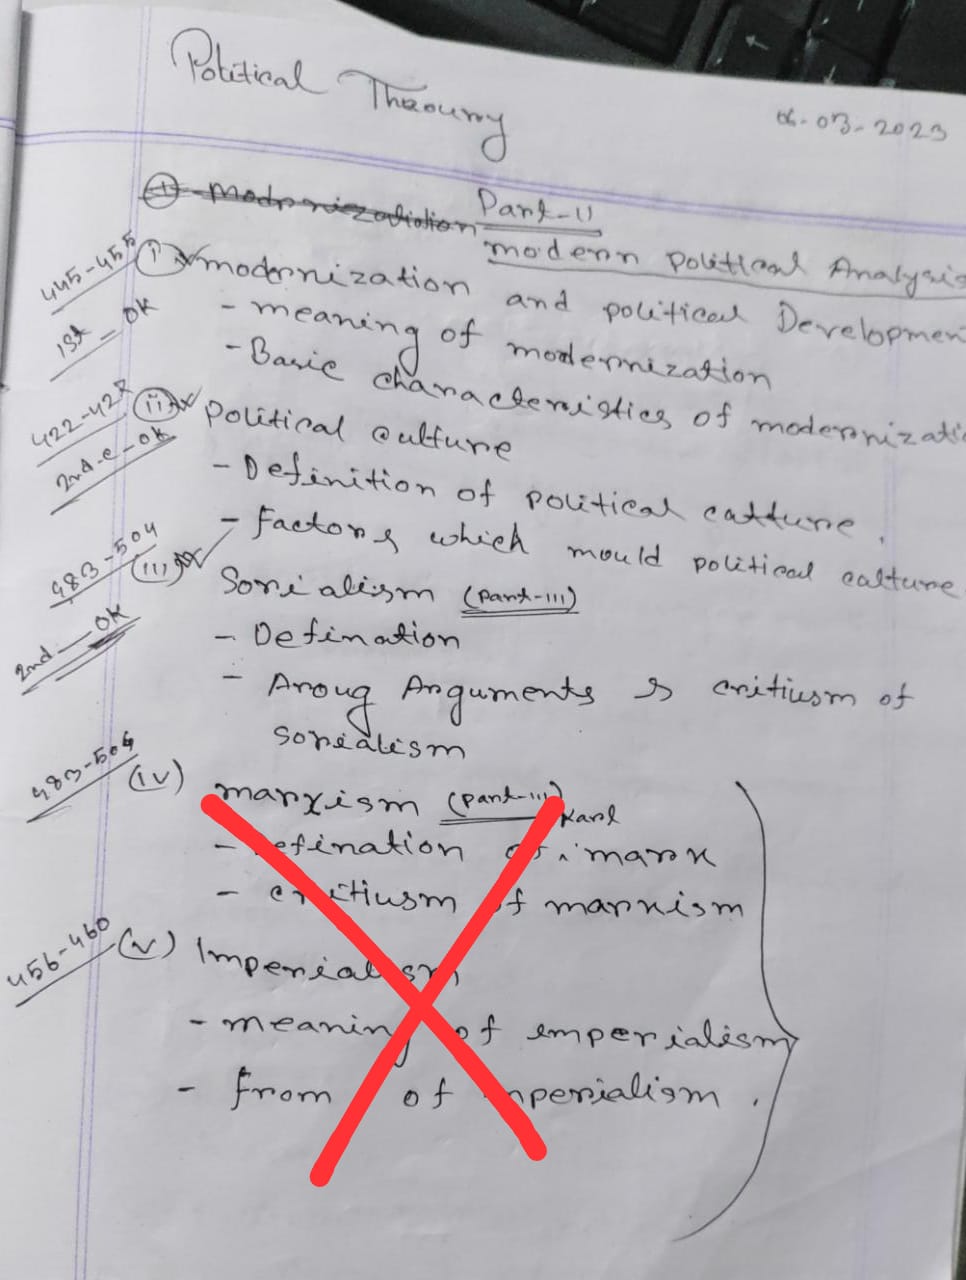 Political Theoury
06-03-2023
Part-II
modern political Analysis
445-455 (i) modernization and political Developmen
1st - ok - meaning of modernization
- Basic characteristics of modernizati
422-427 (ii) political culture
2nd-e-ok - Definition of political cutture.
- factors which mould political culture
483-504 (iii) Sorialism (part-III)
2nd - ok - Defination
- Aroug Arguments & critiusm of
sorialism
483-504 (iv) marxism (part-III)
Karl
- Defination of marx
- critiusm of marxism
456-460 (v) Imperialism
- meaning of imperialism
- from of imperialism.